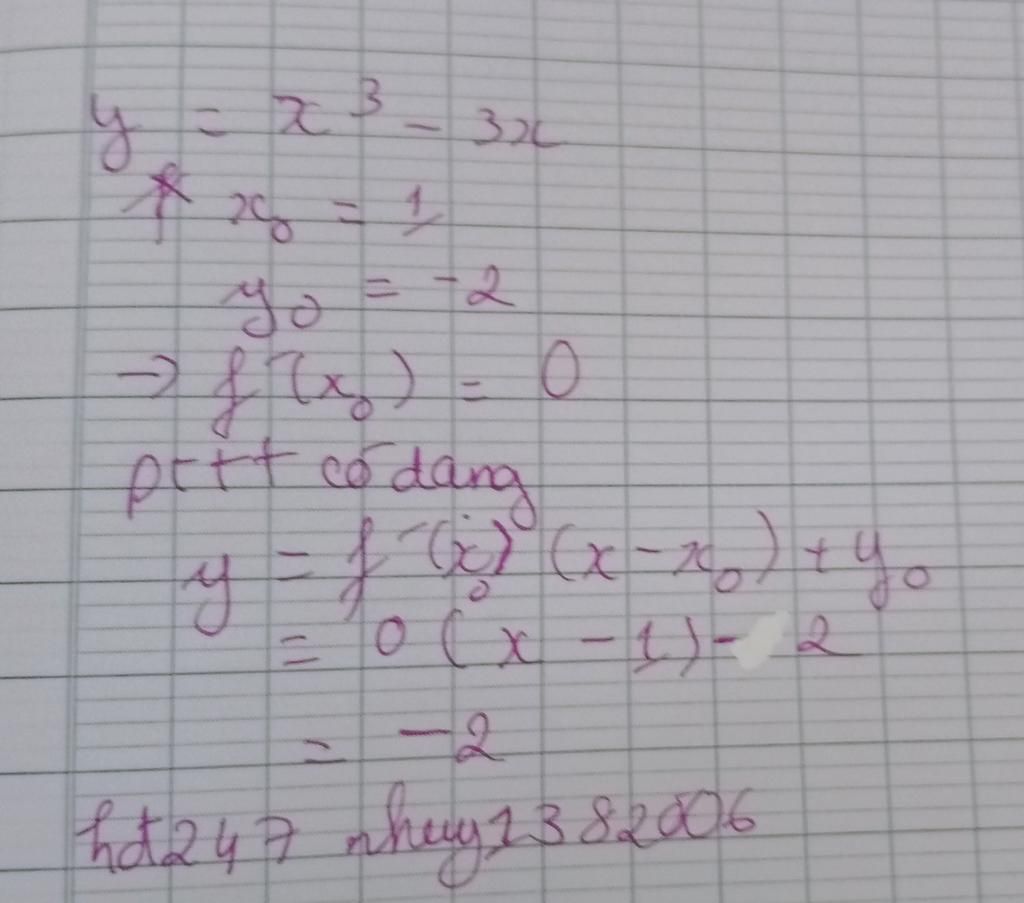 y = x³ - 3x
* x₀ = 1
y₀ = -2
→ f'(x₀) = 0
pttt có dạng
y = f'(x₀) (x - x₀) + y₀
= 0 (x - 1) - 2
= -2
hd247 nhuy1382006